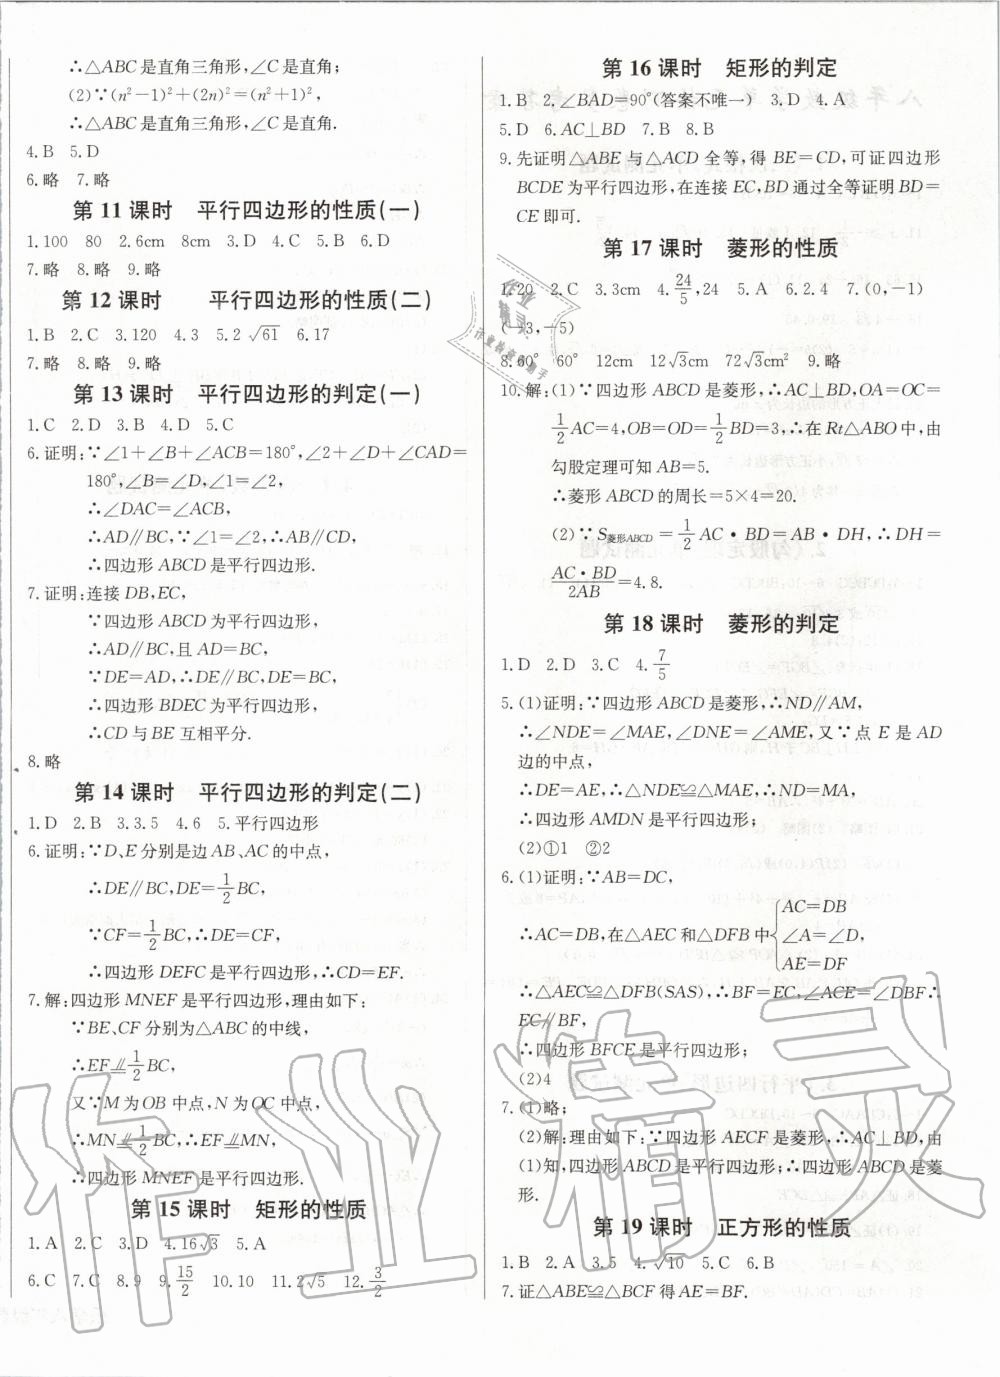 ∴△ABC是直角三角形,∠C是直角;
(2)∵(n²－1)²＋(2n)²＝(n²＋1)²,
∴△ABC是直角三角形,∠C是直角.
4.B 5.D
6.略 7.略
第11课时 平行四边形的性质(一)
1.100 80 2.6cm 8cm 3.D 4.C 5.B 6.D
7.略 8.略 9.略
第12课时 平行四边形的性质(二)
1.B 2.C 3.120 4.3 5.2√61 6.17
7.略 8.略 9.略
第13课时 平行四边形的判定(一)
1.C 2.D 3.B 4.D 5.C
6.证明:∵∠1＋∠B＋∠ACB＝180°,∠2＋∠D＋∠CAD＝
180°,∠B＝∠D,∠1＝∠2,
∴∠DAC＝∠ACB,
∴AD∥BC,∵∠1＝∠2,∴AB∥CD,
∴四边形ABCD是平行四边形.
7.证明:连接DB,EC,
∵四边形ABCD为平行四边形,
∴AD∥BC,且AD＝BC,
∵DE＝AD,∴DE∥BC,DE＝BC,
∴四边形BDEC为平行四边形,
∴CD与BE互相平分.
8.略
第14课时 平行四边形的判定(二)
1.D 2.B 3.3.5 4.6 5.平行四边形
6.证明:∵D、E分别是边AB、AC的中点,
∴DE∥BC,DE＝1/2BC,
∵CF＝1/2BC,∴DE＝CF,
∴四边形DEFC是平行四边形,∴CD＝EF.
7.解:四边形MNEF是平行四边形,理由如下:
∵BE、CF分别为△ABC的中线,
∴EF⫽1/2BC,
又∵M为OB中点,N为OC中点,
∴MN⫽1/2BC,∴EF⫽MN,
∴四边形MNEF是平行四边形.
第15课时 矩形的性质
1.A 2.C 3.D 4.16√3 5.A
6.C 7.C 8.9 9.15/2 10.10 11.2√5 12.3/2
第16课时 矩形的判定
1.B 2.∠BAD＝90°(答案不唯一) 3.D 4.A
5.D 6.AC⊥BD 7.B 8.B
9.先证明△ABE与△ACD全等,得BE＝CD,可证四边形
BCDE为平行四边形,在连接EC,BD通过全等证明BD＝
CE即可.
第17课时 菱形的性质
1.20 2.C 3.3cm 4.24/5,24 5.A 6.2.4 7.(0,－1)
(－3,－5)
8.60° 60° 12cm 12√3cm 72√3cm² 9.略
10.解:(1)∵四边形ABCD是菱形,∴AC⊥BD,OA＝OC＝
1/2AC＝4,OB＝OD＝1/2BD＝3,∴在Rt△ABO中,由
勾股定理可知AB＝5.
∴菱形ABCD的周长＝5×4＝20.
(2)∵S菱形ABCD＝1/2AC·BD＝AB·DH,∴DH＝
AC·BD/2AB＝4.8.
第18课时 菱形的判定
1.D 2.D 3.C 4.7/5
5.(1)证明:∵四边形ABCD是菱形,∴ND∥AM,
∴∠NDE＝∠MAE,∠DNE＝∠AME,又∵点E是AD
边的中点,
∴DE＝AE,∴△NDE≌△MAE,∴ND＝MA,
∴四边形AMDN是平行四边形;
(2)①1 ②2
6.(1)证明:∵AB＝DC,
∴AC＝DB,在△AEC和△DFB中{AC＝DB
∠A＝∠D,
AE＝DF
∴△AEC≌△DFB(SAS),∴BF＝EC,∠ACE＝∠DBF∴
EC∥BF,
∴四边形BFCE是平行四边形;
(2)4
7.(1)略;
(2)解:理由如下:∵四边形AECF是菱形,∴AC⊥BD,由
(1)知,四边形ABCD是平行四边形,∴四边形ABCD是菱
形.
第19课时 正方形的性质
1.B 2.A 3.5 4.√10 5.C 6.B
7.证△ABE≌△BCF得AE＝BF.
作业精灵